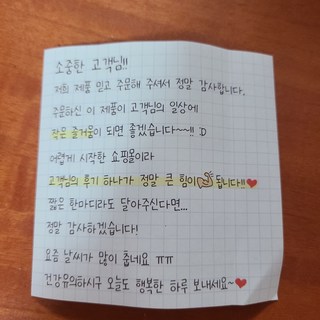 소중한 고객님!!
저희 제품 믿고 주문해 주셔서 정말 감사합니다.
주문하신 이 제품이 고객님의 일상에
작은 즐거움이 되면 좋겠습니다~~!! :D
어렵게 시작한 쇼핑몰이라
고객님의 후기 하나가 정말 큰 힘이💪됩니다!!❤
짧은 한마디라도 달아주신다면...
정말 감사하겠습니다!
요즘 날씨가 많이 춥네요 ㅠㅠ
건강유의하시구 오늘도 행복한 하루 보내세요~❤